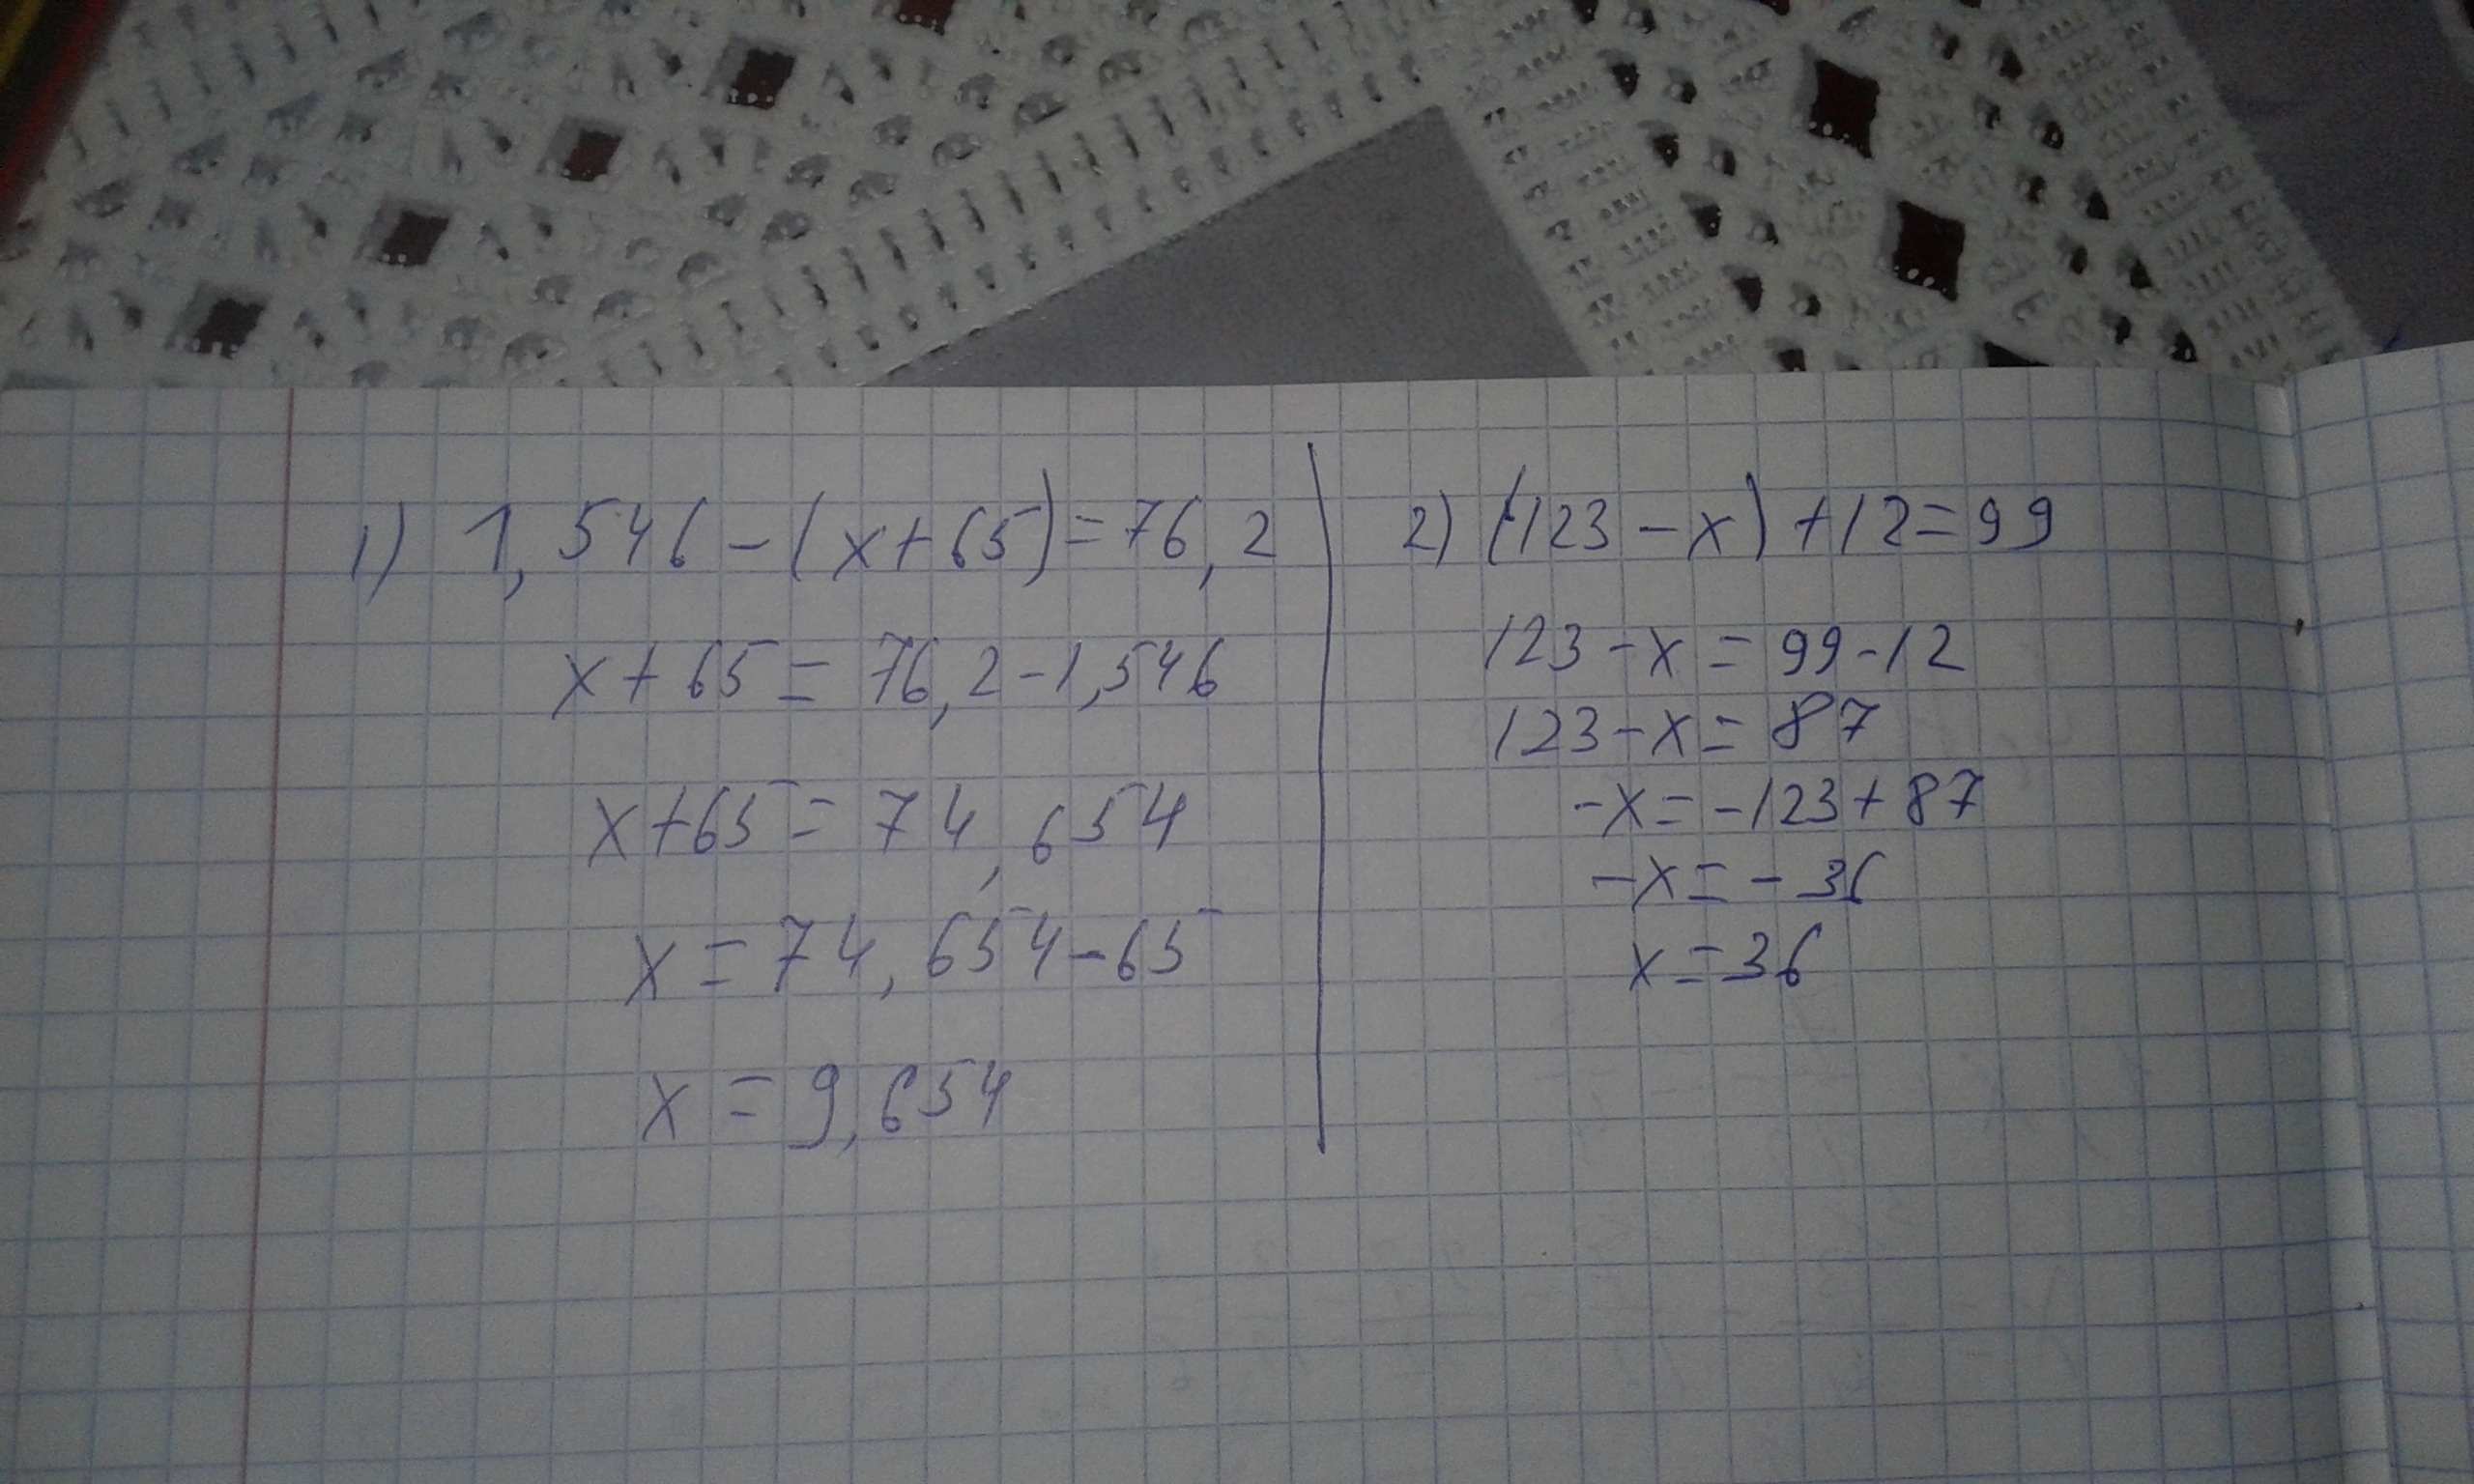 1) 1,546-(x+65)=76,2
x+65=76,2-1,546
x+65=74,654
x=74,654-65
x=9,654
2) (123-x)+12=99
123-x=99-12
123-x=87
-x=-123+87
-x=-36
x=36